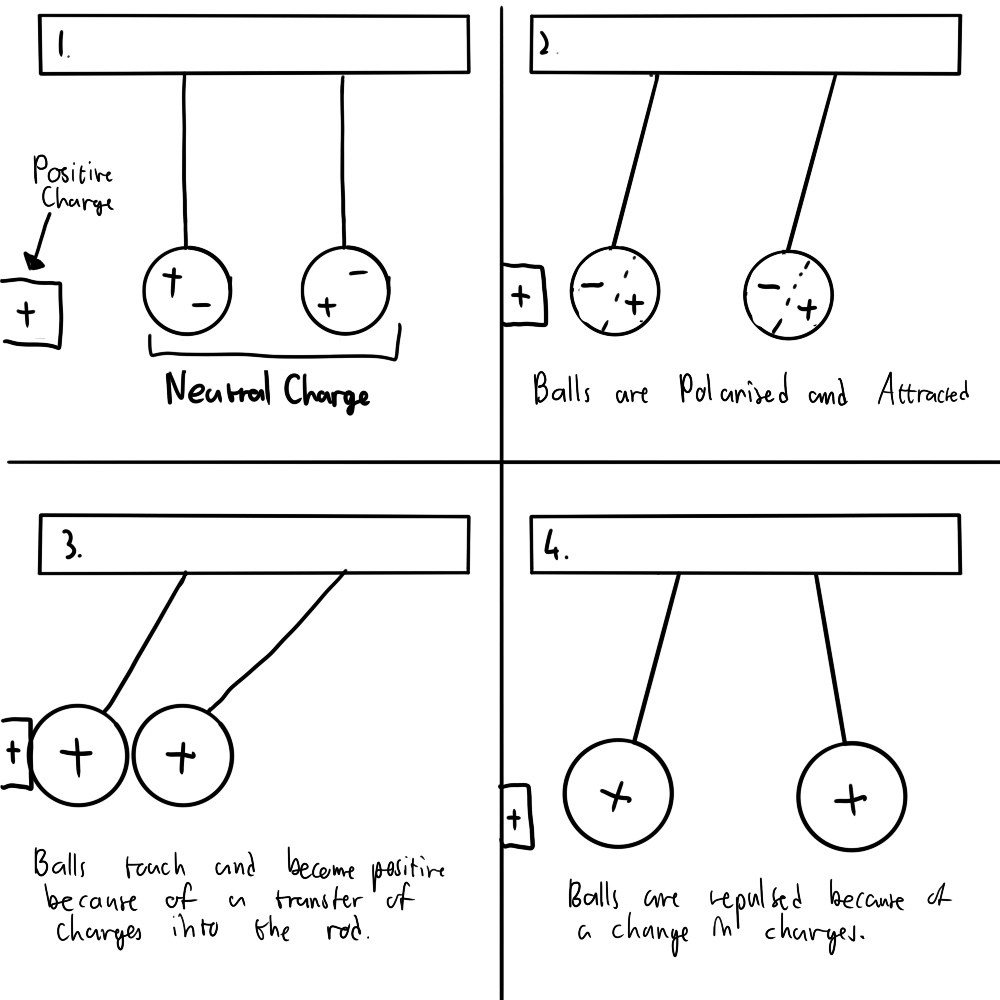 1.
Positive
Charge
+
+
-
-
+
Neutral Charge
2.
+
-
+
-
+
Balls are Polarised and Attracted
3.
+
+
+
Balls touch and become positive
because of a transfer of
charges into the rod.
4.
+
+
+
Balls are repulsed because of
a change in charges.